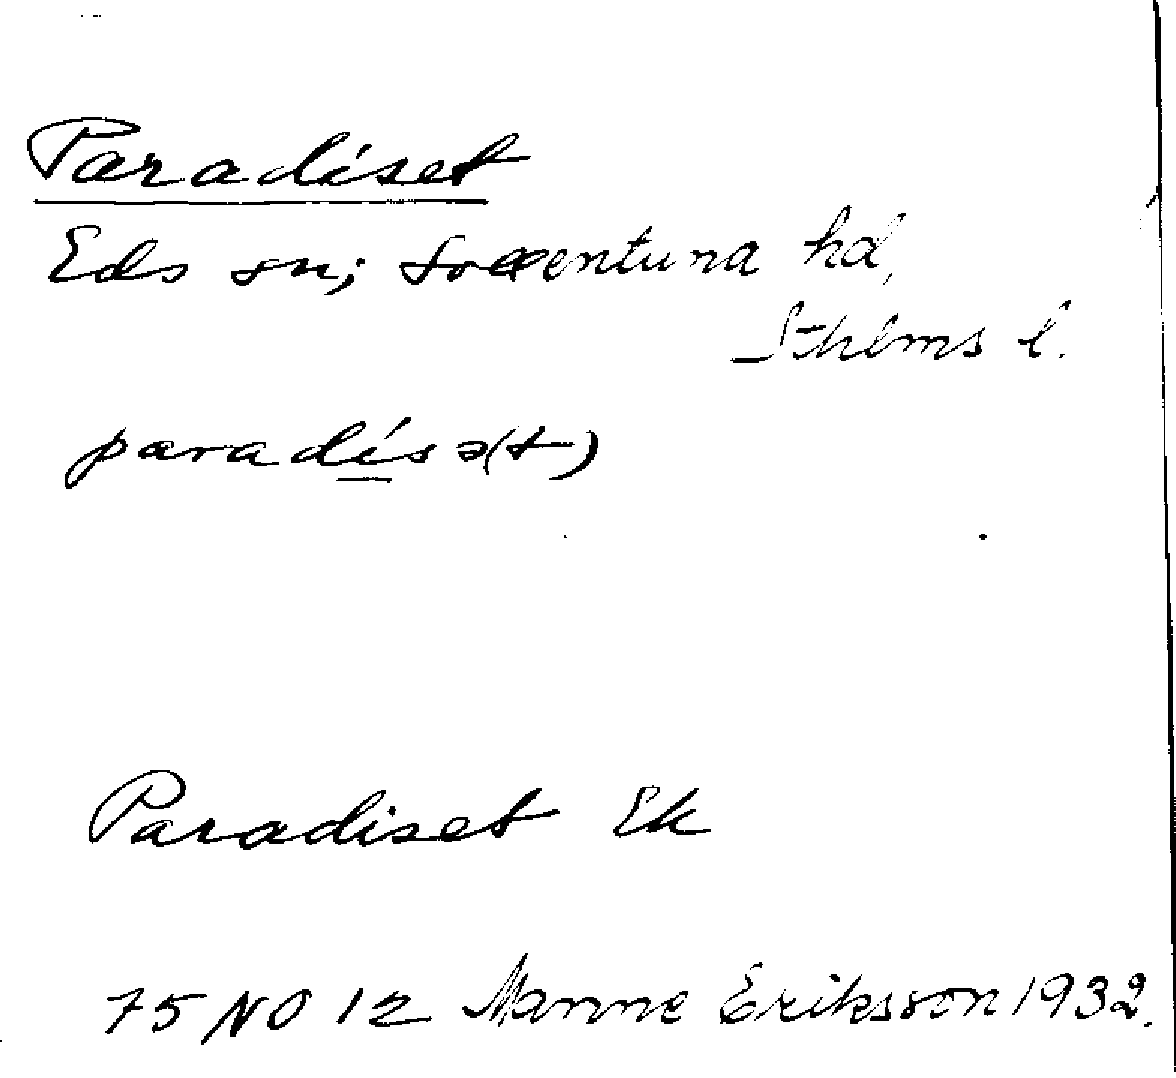 Paradiset
Eds sn; Sollentuna hd,
Sthlms l.
paradi̲sə(t)
Paradiset Ek
75 NO 12 Manne Eriksson 1932.